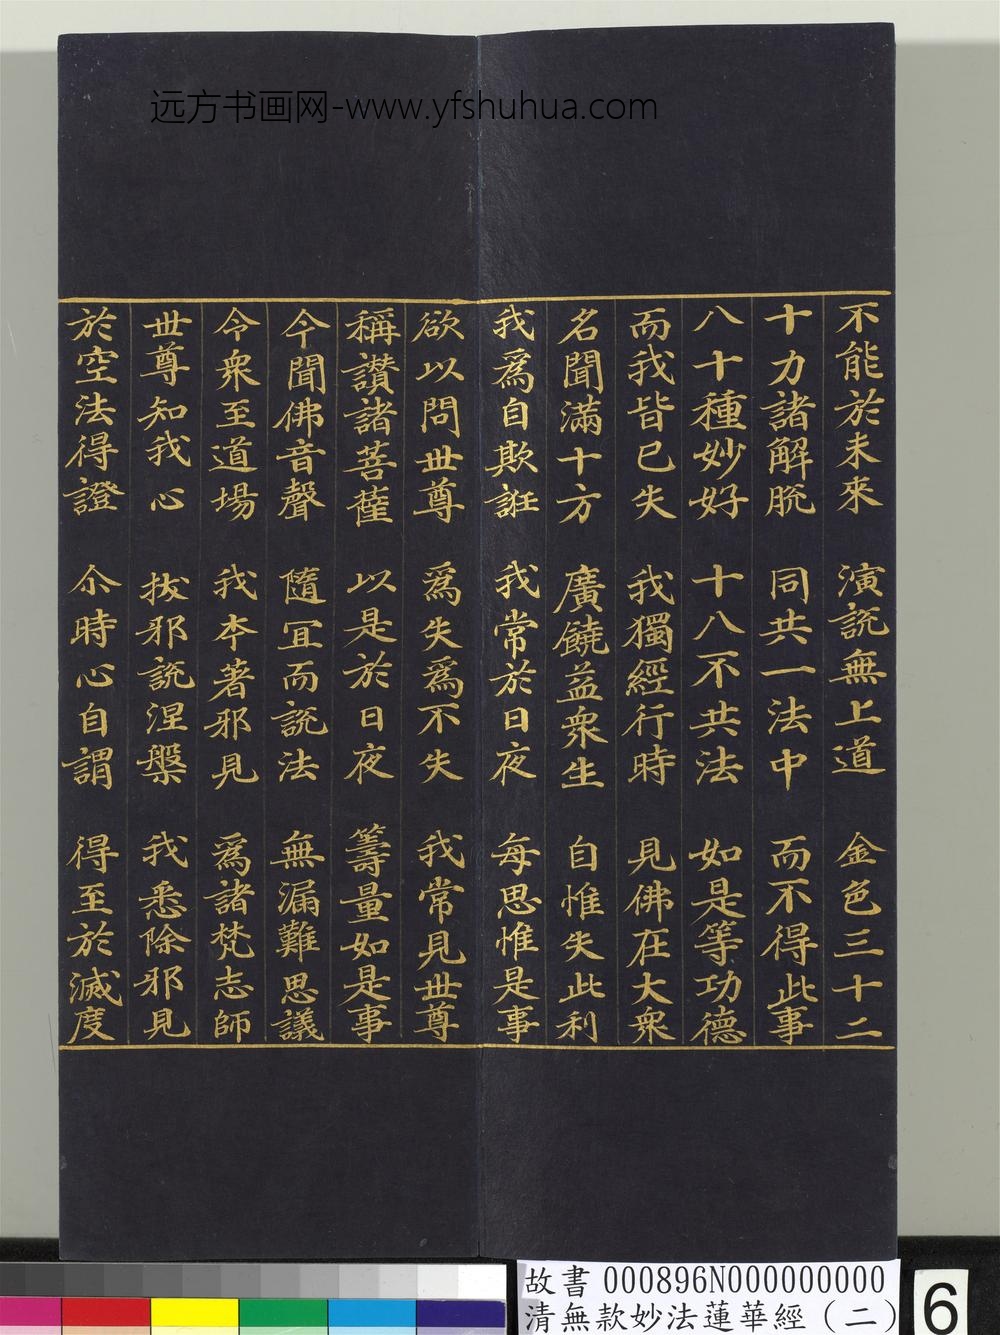 远方书画网-www.yfshuhua.com
不能於未來 演説無上道 金色三十二
十力諸解脫 同共一法中 而不得此事
八十種妙好 十八不共法 如是等功德
而我皆已失 我獨經行時 見佛在大衆
名聞滿十方 廣饒益衆生 自惟失此利
我爲自欺誑 我常於日夜 每思惟是事
欲以問世尊 爲失爲不失 我常見世尊
稱讚諸菩薩 以是於日夜 籌量如是事
今聞佛音聲 隨冝而說法 無漏難思議
令衆至道場 我本著邪見 爲諸梵志師
世尊知我心 拔邪説涅槃 我悉除邪見
於空法得證 尒時心自謂 得至於滅度
故書 000896N000000000
清無款妙法蓮華經(二)
6